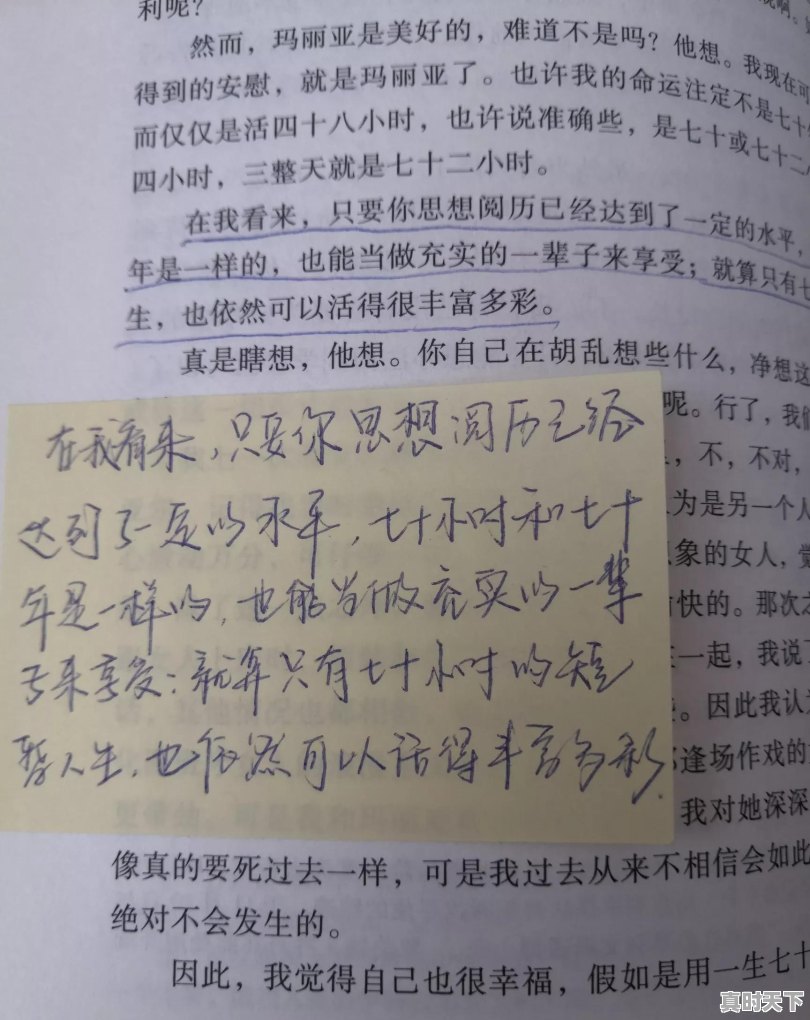 利呢？
然而，玛丽亚是美好的，难道不是吗？他想。我现在可
得到的安慰，就是玛丽亚了。也许我的命运注定不是七十
而仅仅是活四十八小时，也许说准确些，是七十或七十二
四小时，三整天就是七十二小时。
在我看来，只要你思想阅历已经达到了一定的水平，
年是一样的，也能当做充实的一辈子来享受；就算只有七
生，也依然可以活得很丰富多彩。
真是瞎想，他想。你自己在胡乱想些什么，净想这
呢。行了，我们
，不，不对，
为是另一个人
象的女人，觉
快的。那次之
一起，我说了
。因此我认为
逢场作戏的
我对她深深
在我看来，只要你思想阅历已经
达到了一定的水平，七十小时和七十
年是一样的，也能当做充实的一辈
子来享受；就算只有七十小时的短
暂人生，也依然可以活得丰富多彩．
像真的要死过去一样，可是我过去从来不相信会如此
绝对不会发生的。
因此，我觉得自己也很幸福，假如是用一生七十
真时天下